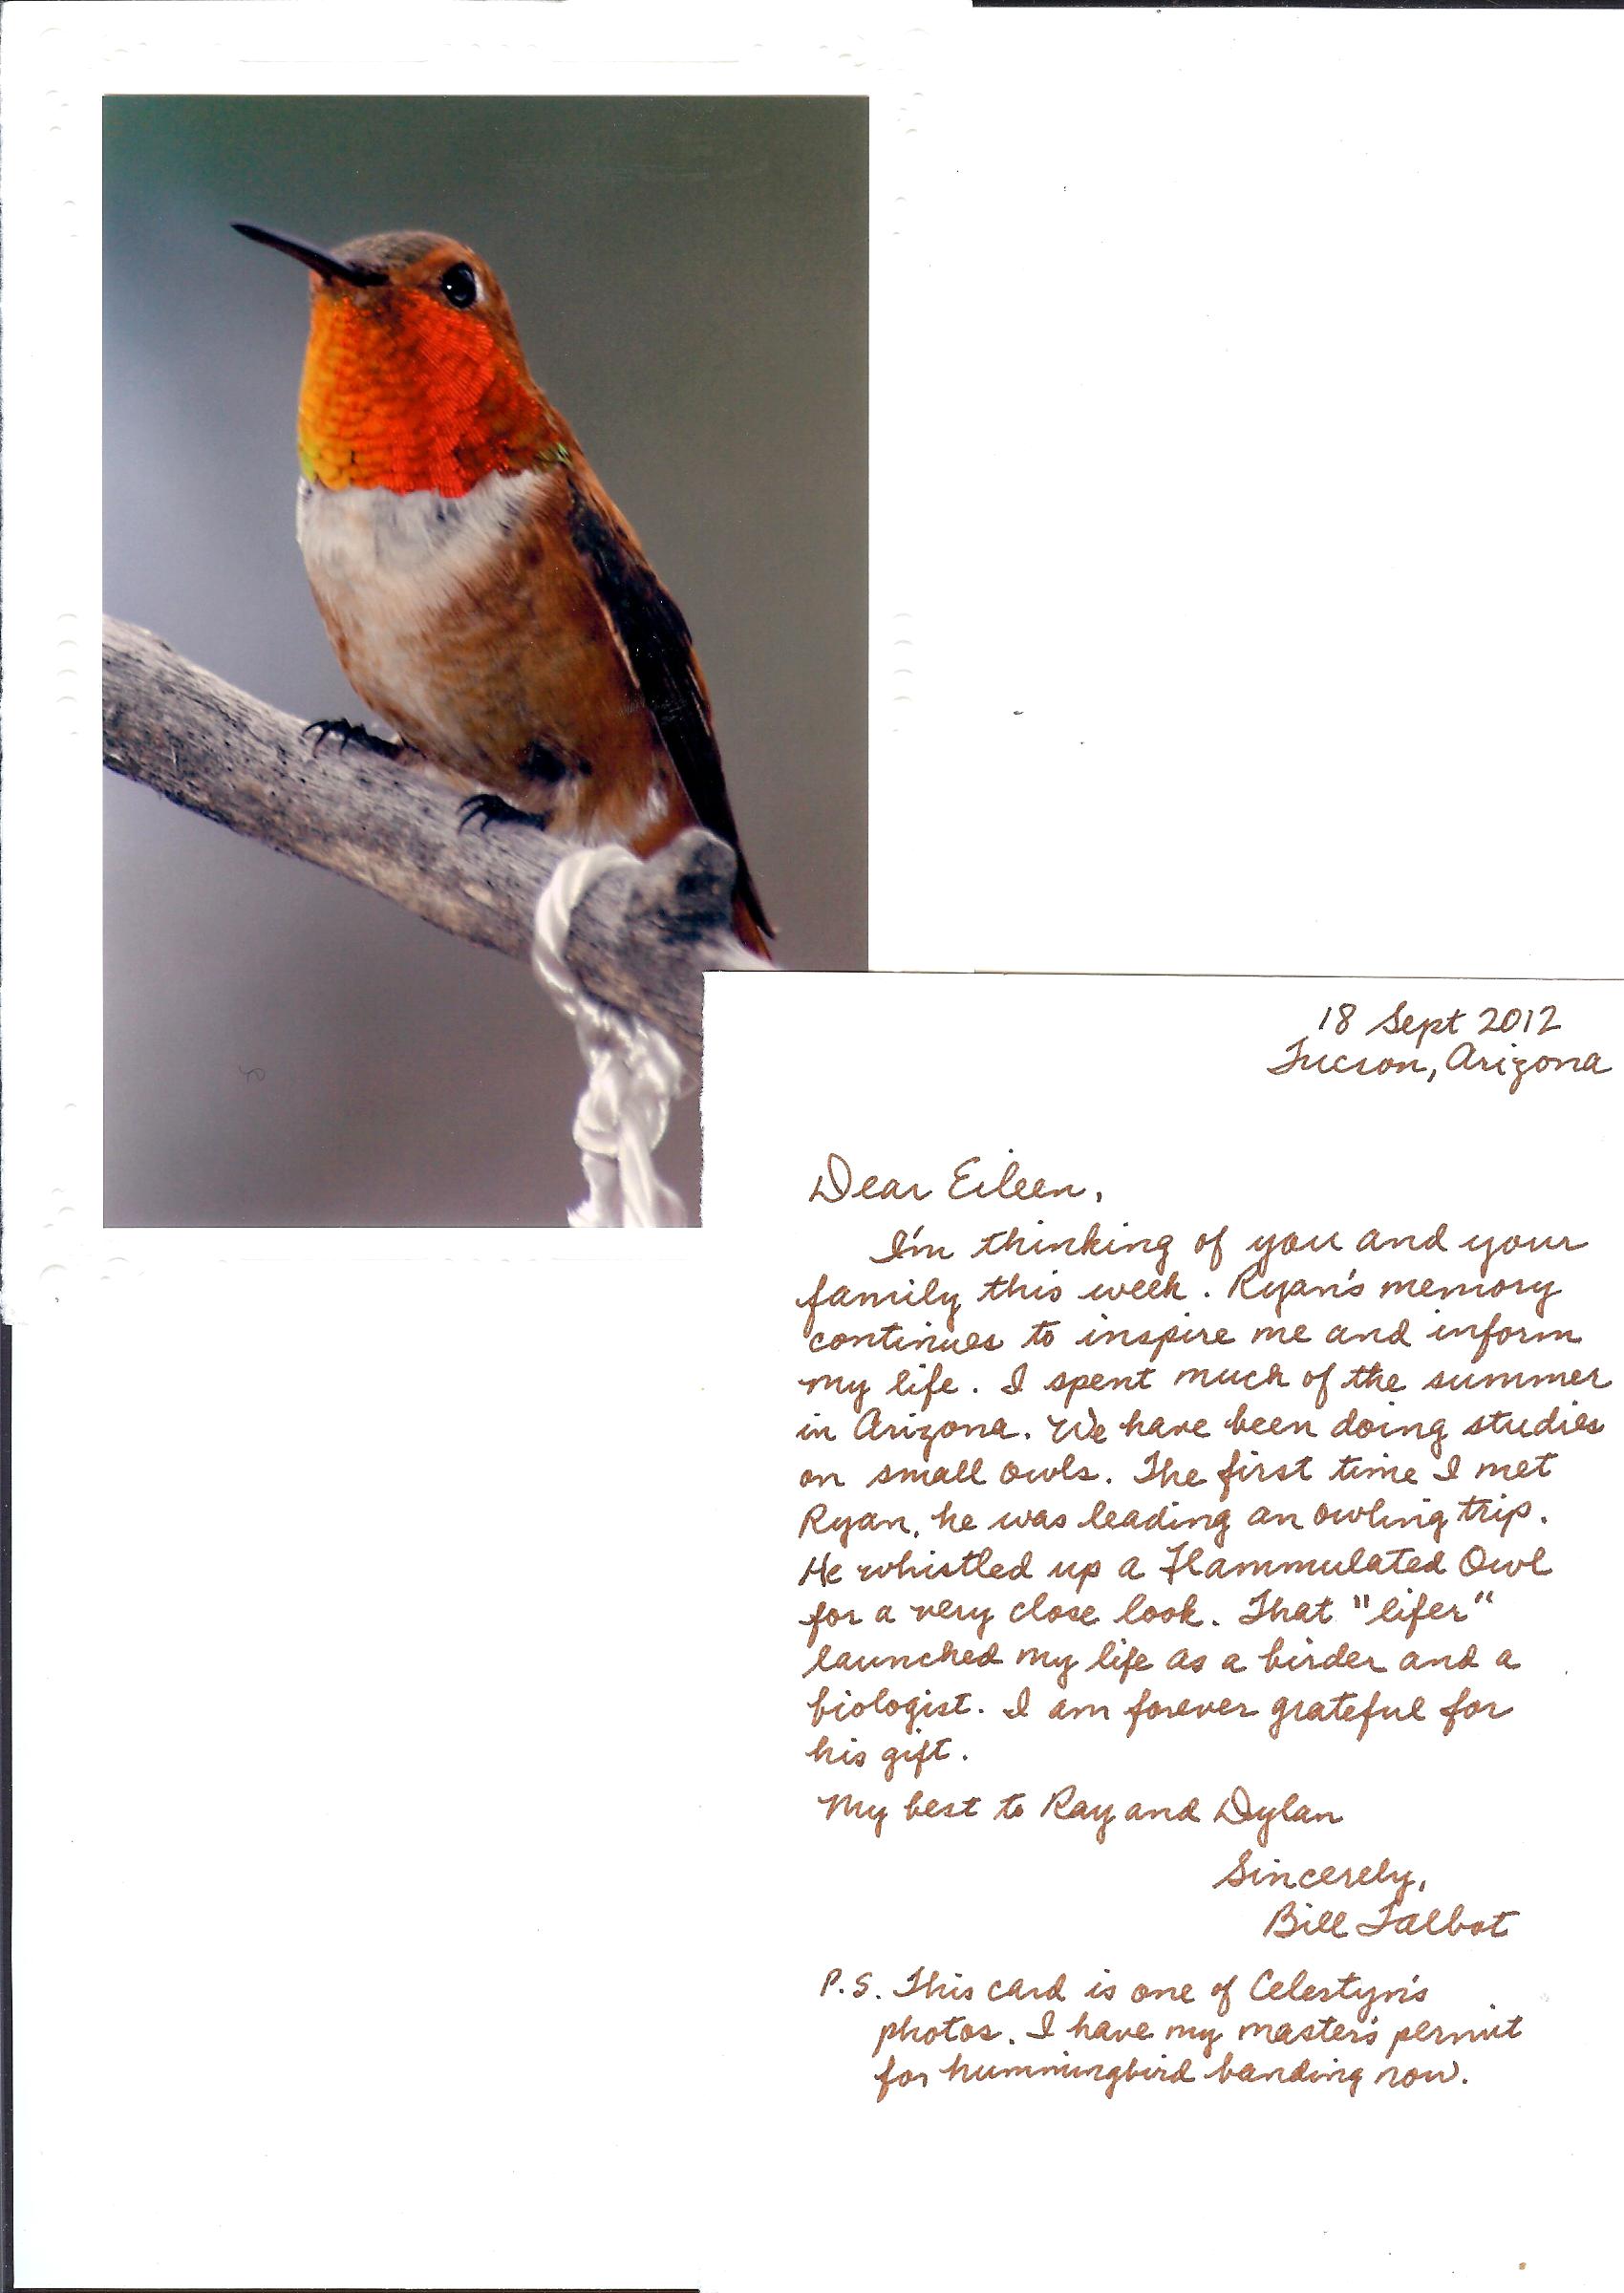 18 Sept 2012
Tucson, Arizona
Dear Eileen,
I'm thinking of you and your
family this week. Ryan's memory
continues to inspire me and inform
my life. I spent much of the summer
in Arizona. We have been doing studies
on small owls. The first time I met
Ryan, he was leading an owling trip.
He whistled up a Flammulated Owl
for a very close look. That "lifer"
launched my life as a birder and a
biologist. I am forever grateful for
his gift.
My best to Ray and Dylan
Sincerely,
Bill Talbot
P.S. This card is one of Celestyn's
photos. I have my master's permit
for hummingbird banding now.